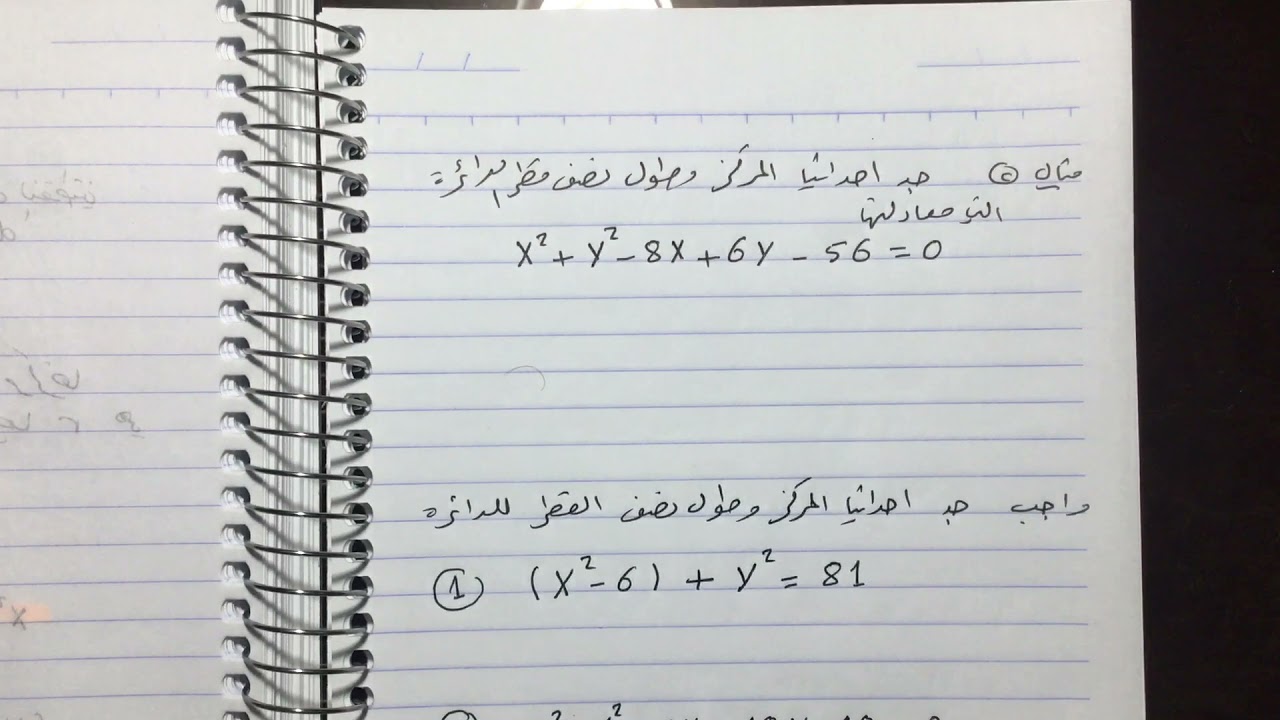 مثال ٥ جد احداثيا المركز وطول نصف قطر الدائرة
التي معادلتها
x² + y² - 8x + 6y - 56 = 0
واجب جد احداثيا المركز وطول نصف القطر للدائرة
① (x² - 6) + y² = 81